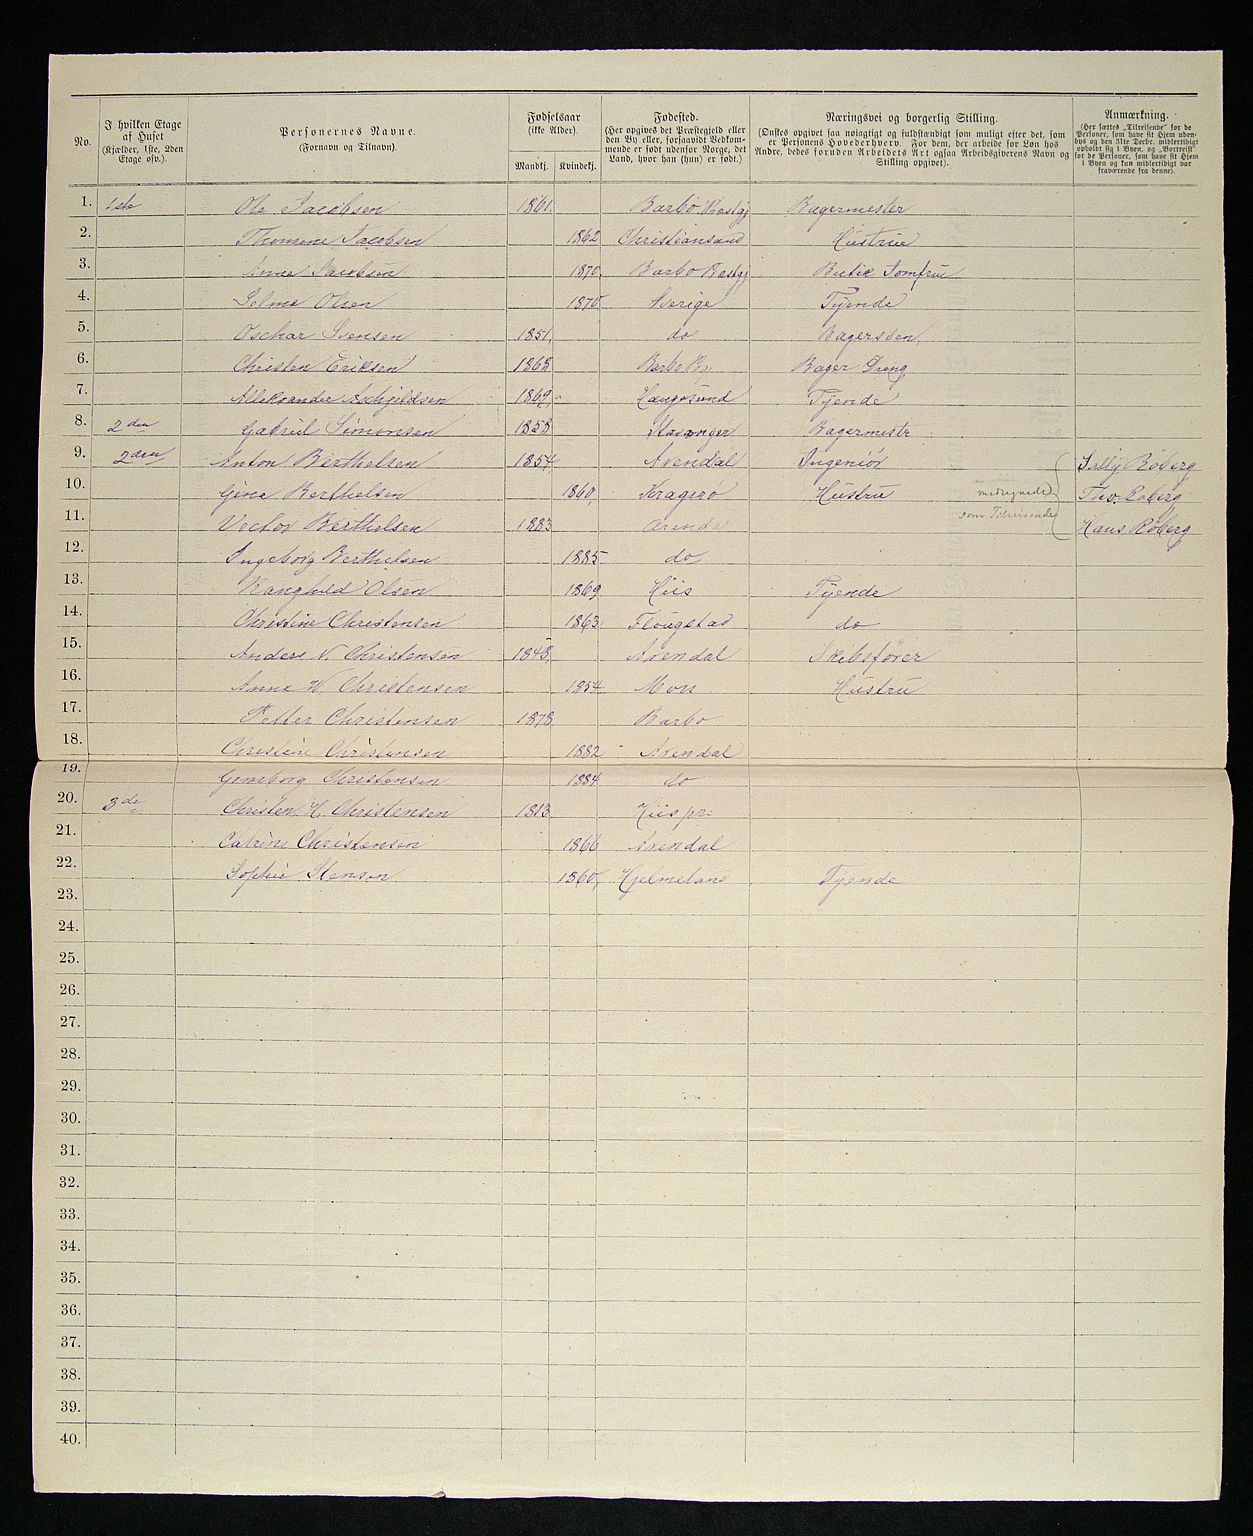 No. I hvilken Etage af Huset (Kjælder, 1ste, 2den Etage osv.). Personernes Navne. (Fornavn og Tilnavn). Fødselsaar (ikke Alder). Mandkj. Kvindekj. Fødested. (Her opgives det Præstegjeld eller den By eller, forsaavidt Vedkommende er født udenfor Norge, det Land, hvor han (hun) er født.) Næringsvei og borgerlig Stilling. (Ønskes opgivet saa nøiagtigt og fuldstændigt som muligt efter det, som er Personens Hovederhverv. For dem, der arbeide for Løn hos Andre, bedes foruden Arbeidets Art ogsaa Arbeidsgiverens Navn og Stilling opgivet). Anmærkning. (Her sættes „Tilreisende“ for de Personer, som have sit Hjem udenbys og den 31te Decbr. midlertidigt opholdt sig i Byen, og „Bortreist“ for de Personer, som have sit Hjem i Byen og kun midlertidigt var fraværende fra denne).
1. 1ste Ole Jacobsen 1861. Barbo Prestgj Bagermester
2. Thomine Jacobsen 1862 Christiansand Hustrue
3. Anna Jacobsen 1870. Barbo Prestgj Butik Jomfrue
4. Selma Olsen 1870 Sverige Tjende
5. Oschar Svensen 1851. do Bagersven
6. Christen Eriksen 1868 Barbo Pr. Bager Dreng
7. Alleksander Aschjeldsen 1869, Haugesund Tjende
8. 2den Gabriel Simonsen 1858 Stavanger Bagermestr
9. 2den Anton Berthelsen 1854 Arendal Ingeniør Sally Roberg
10. Gine Berthelsen 1860, Kragerø Hustru medregnede Tho. Roberg
11. Vectos Berthelsen 1883 Arendal som Tilreisende Hans Roberg
12. Ingeborg Berthelsen 1885 do
13. Ranghild Olsen 1869 Hiis Tjende
14. Christine Christensen 1863. Flougstad do
15. Anders N. Christensen 1848, Arendal Skibsfører
16. Anne W. Christensen 1854 Mors. Hustru
17. Petter Christensen 1878 Barbo
18. Christine Christensen 1882 Arendal
19. Christensen 1884 do
20. 3de Christen H. Christensen 1813 Hiis pr:
21. Catrine Christensen 1866 Arendal
22. Sophie Hansen 1860, Hjelmeland Tjende
23.
24.
25.
26.
27.
28.
29.
30.
31.
32.
33.
34.
35.
36.
37.
38.
39.
40.